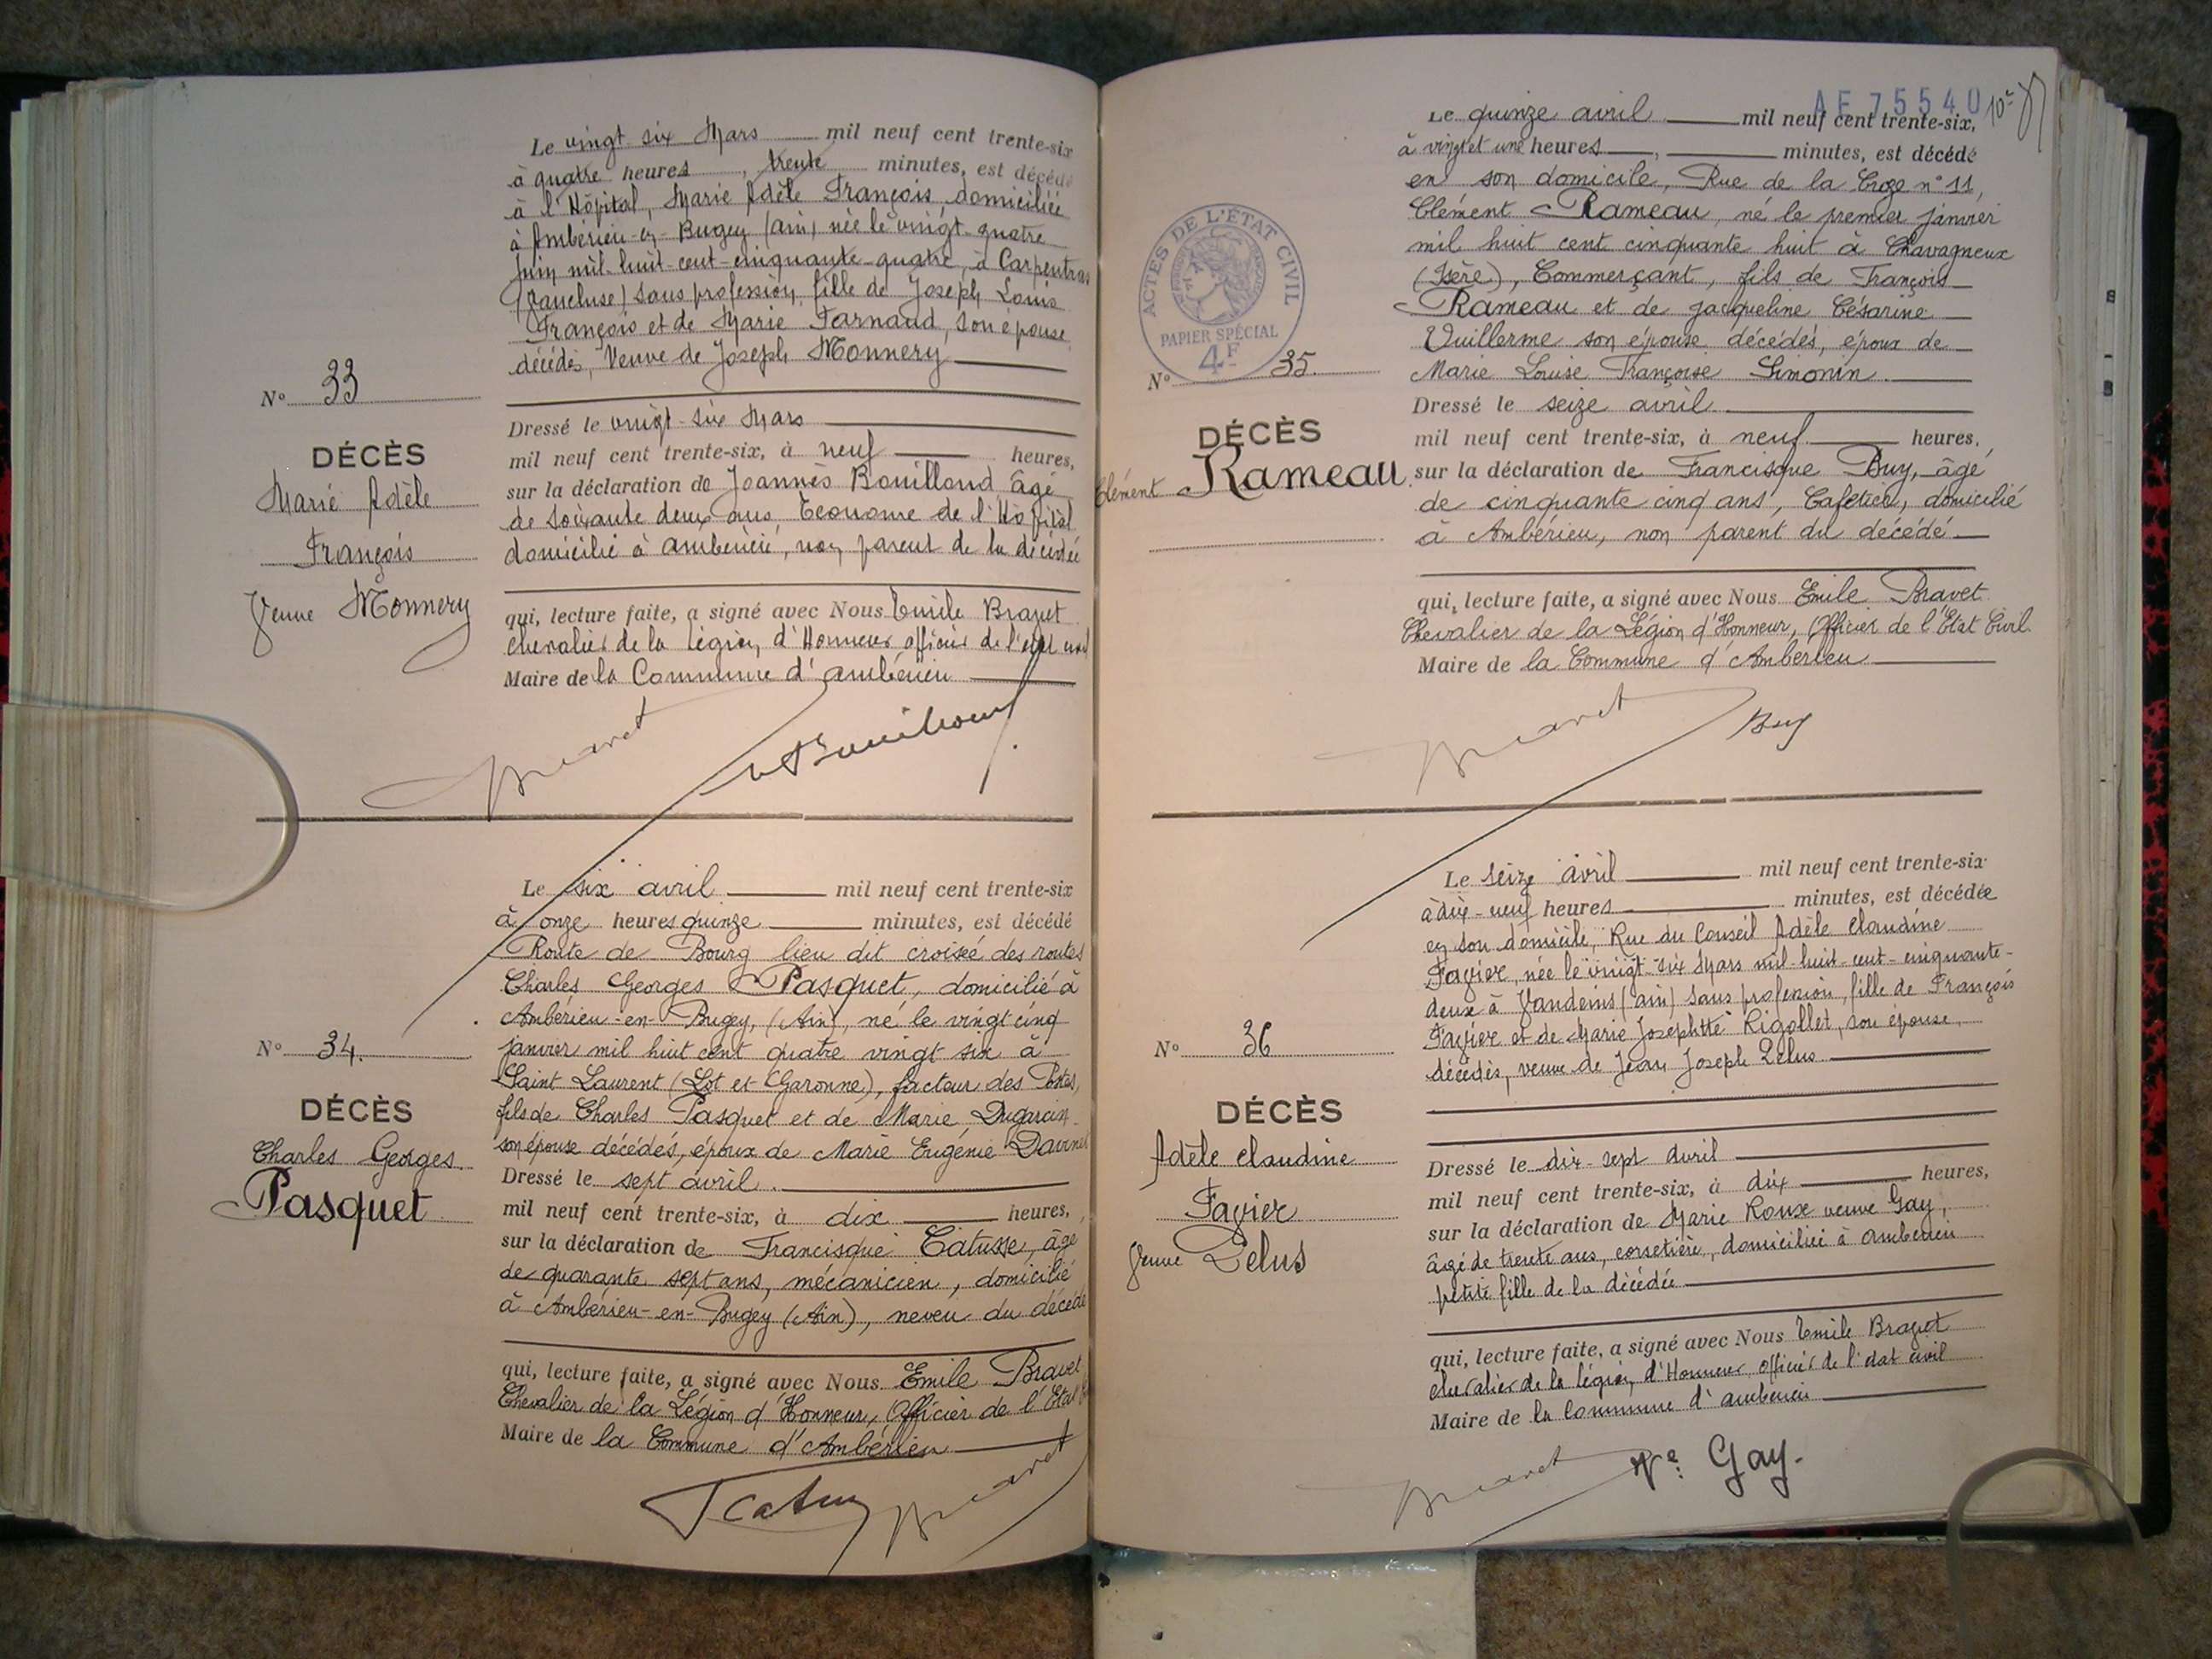 Le vingt six Mars mil neuf cent trente-six
à quatre heures, trente minutes, est décédée
à l'Hôpital, Marie Adèle François domiciliée
à Ambérieu-en-Bugey (ain) née le vingt-quatre
Juin mil-huit-cent-cinquante-quatre, à Carpentras
(Vaucluse) sans profession, fille de Joseph Louis
François et de Marie Farnaud, son épouse
décédés, Veuve de Joseph Monnery
N° 33
DÉCÈS
Marie Adèle
François
Veuve Monnery
Dressé le vingt-six Mars
mil neuf cent trente-six, à neuf heures,
sur la déclaration de Joannès Bouilloud âgé
de soixante deux ans, Econome de l'Hôpital
domicilié à ambérieu, non parent de la décédée
qui, lecture faite, a signé avec Nous Emile Bravet
chevalier de la légion d'Honneur officier de l'état civil
Maire de la Commune d'ambérieu
Bravet
Bouilloud
Le six avril mil neuf cent trente-six
à onze heures quinze minutes, est décédé
Route de Bourg lieu dit croisée des routes
Charles Georges Pasquet, domicilié à
Ambérieu-en-Bugey, (Ain), né le vingt cinq
janvier mil huit cent quatre vingt six à
Saint Laurent (Lot et Garonne), facteur des Postes,
fils de Charles Pasquet et de Marie Dugarcin
son épouse décédés, époux de Marie Eugénie
N° 34.
DÉCÈS
Charles Georges
Pasquet
Dressé le sept avril
mil neuf cent trente-six, à dix heures,
sur la déclaration de Francisque Catusse, âgé
de quarante sept ans, mécanicien, domicilié
à Ambérieu-en-Bugey (Ain), neveu du décédé
qui, lecture faite, a signé avec Nous Emile Bravet
Chevalier de la Légion d'Honneur, Officier de l'Etat
Maire de la Commune d'Ambérieu
Bravet
AE 75540
10e
Le quinze avril mil neuf cent trente-six,
à vingt et une heures, minutes, est décédé
en son domicile, Rue de la Croze n° 11,
Clément Rameau, né le premier janvier
mil huit cent cinquante huit à Chavagneux
(Isère), Commerçant, fils de François
Rameau et de Jacqueline Césarine
Vuillerme son épouse décédés, époux de
Marie Louise Françoise Simonin
ACTES DE L'ÉTAT CIVIL
PAPIER SPÉCIAL
4F
N° 35.
DÉCÈS
Clément Rameau
Dressé le seize avril
mil neuf cent trente-six, à neuf heures,
sur la déclaration de Francisque Buy, âgé
de cinquante cinq ans, Cafetier, domicilié
à Ambérieu, non parent du décédé
qui, lecture faite, a signé avec Nous Emile Bravet
Chevalier de la Légion d'Honneur, Officier de l'Etat Civil
Maire de la Commune d'Ambérieu
Bravet
Buy
Le seize avril mil neuf cent trente-six
à dix-neuf heures minutes, est décédée
en son domicile, Rue du Conseil Adèle Claudine
Favier, née le vingt-six Mars mil-huit-cent-cinquante-
deux à Vandeins (ain) sans profession, fille de François
Favier et de Marie Josephtte Rigollet, son épouse
décédés, veuve de Jean Joseph Pelus
N° 36
DÉCÈS
Adèle Claudine
Favier
Veuve Pelus
Dressé le dix-sept avril
mil neuf cent trente-six, à dix heures,
sur la déclaration de Marie Roux veuve Gay,
âgé de trente ans, corsetière, domiciliée à ambérieu
petite fille de la décédée
qui, lecture faite, a signé avec Nous Emile Bravet
chevalier de la légion, d'Honneur, officier de l'état civil
Maire de la Commune d'ambérieu
Bravet
Ve: Gay.